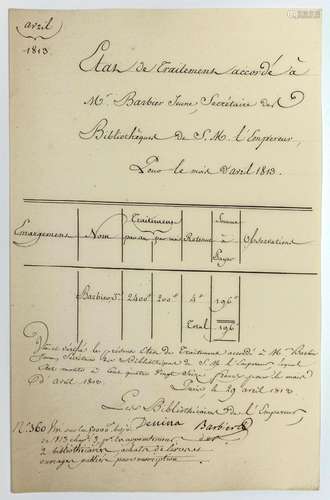 avril
1813
Etat de Traitement accordé à
Mr. Barbier Jeune, Secrétaire des
Bibliothèques de S. M. l'Empereur,
Pour le mois d'avril 1813.
Emargement Nom Traitement par an par mois Retenue Somme à Payer Observations
Barbier Je 2400 200 4 196
Total 196
Vu et vérifié le présent état de Traitement accordé à M. Barbier
Jeune, Secrétaire des Bibliothèques de S. M. l'Empereur lequel
état monte à Cent quatre vingt Seize francs pour le mois
d'avril 1813
Paris le 29 avril 1813
Les Bibliothécaires de l'Empereur,
Denina Barbier
No. 360 sur le
de 1813 chap. 3
2 bibliothécaires, achats de livres
ouvrages publiés par souscription